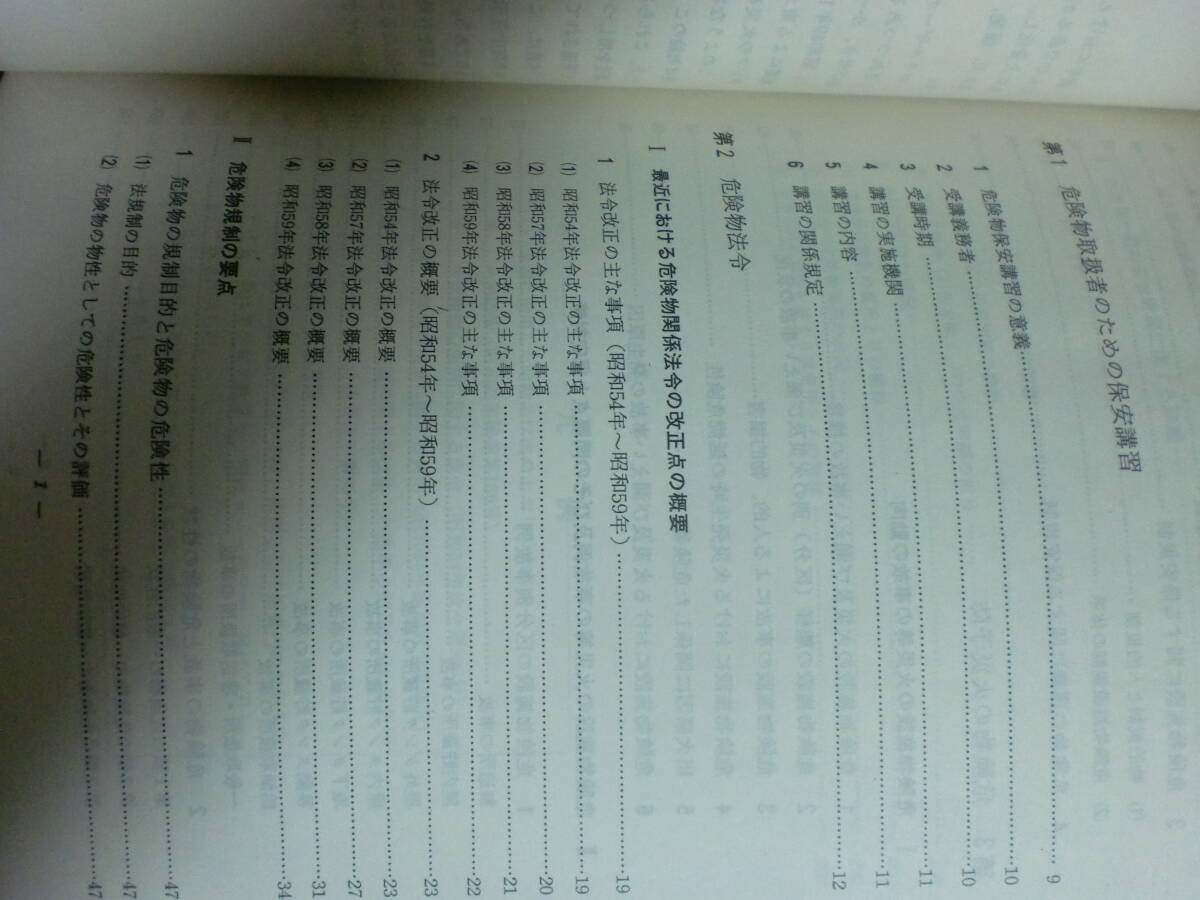 第1 危険物取扱者のための保安講習
1 危険物保安講習の意義……9
2 受講義務者……10
3 受講時期……10
4 講習の実施機関……11
5 講習の内容……11
6 講習の関係規定……12
第2 危険物法令
Ⅰ 最近における危険物関係法令の改正点の概要
1 法令改正の主な事項(昭和54年～昭和59年)……19
(1) 昭和54年法令改正の主な事項……19
(2) 昭和57年法令改正の主な事項……20
(3) 昭和58年法令改正の主な事項……21
(4) 昭和59年法令改正の主な事項……22
2 法令改正の概要(昭和54年～昭和59年)……23
(1) 昭和54年法令改正の概要……23
(2) 昭和57年法令改正の概要……27
(3) 昭和58年法令改正の概要……31
(4) 昭和59年法令改正の概要……34
Ⅱ 危険物規制の要点
1 危険物の規制目的と危険物の危険性……47
(1) 法規制の目的……47
(2) 危険物の物性としての危険性とその評価……47
— 1 —